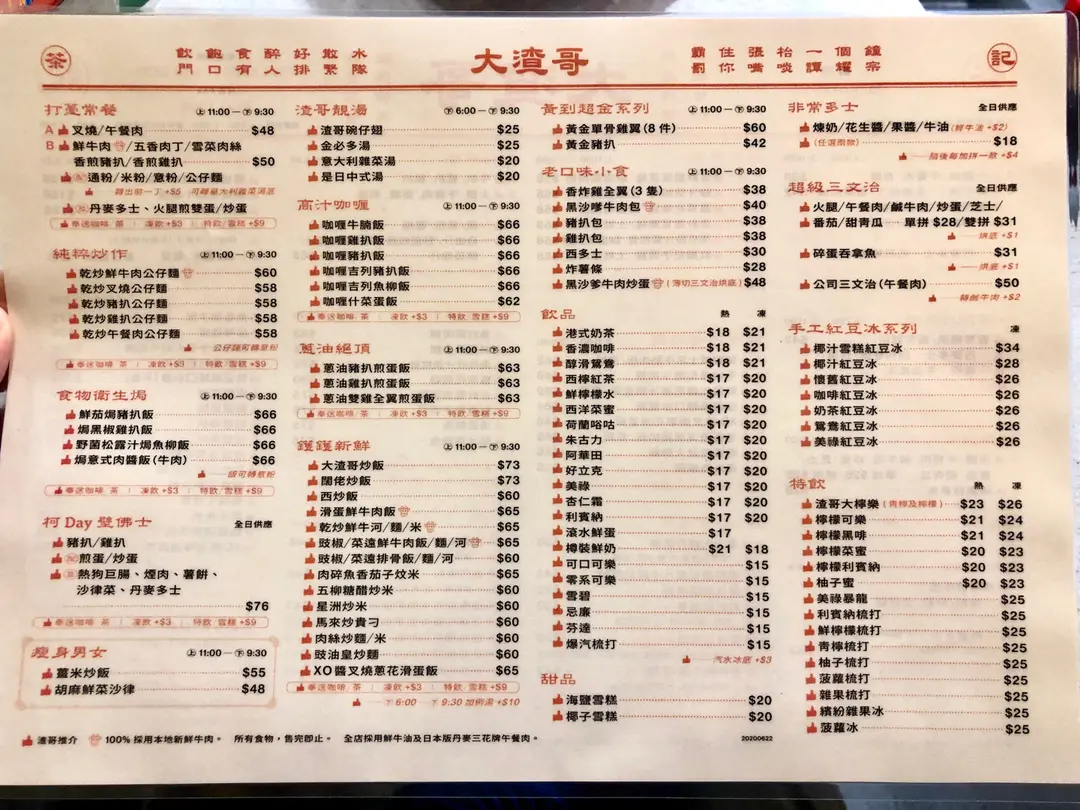 茶
飲飽食醉好散水
門口有人排緊隊
大渣哥
霸住張枱一個鐘
罰你嘴啖譚耀宗
記
打躉常餐 上11:00—下9:30
A 叉燒/午餐肉 $48
B 鮮牛肉/五香肉丁/雪菜肉絲
香煎豬扒/香煎雞扒 $50
通粉/米粉/意粉/公仔麵
轉出前一丁 +$5 可轉意大利雜菜湯底
丹麥多士、火腿煎雙蛋/炒蛋
奉送咖啡 茶 | 凍飲+$3 | 特飲/雪糕+$9
純粹炒作 上11:00—下9:30
乾炒鮮牛肉公仔麵 $60
乾炒叉燒公仔麵 $58
乾炒豬扒公仔麵 $58
乾炒雞扒公仔麵 $58
乾炒午餐肉公仔麵 $58
公仔麵可轉意粉
奉送咖啡 茶 | 凍飲+$3 | 特飲/雪糕+$9
食物衛生焗 上11:00—下9:30
鮮茄焗豬扒飯 $66
焗黑椒雞扒飯 $66
野菌松露汁焗魚柳飯 $66
焗意式肉醬飯(牛肉) $66
飯可轉意粉
奉送咖啡 茶 | 凍飲+$3 | 特飲/雪糕+$9
柯 Day 璧佛士 全日供應
豬扒/雞扒
煎蛋/炒蛋
熱狗巨腸、煙肉、薯餅、
沙律菜、丹麥多士
$76
奉送咖啡 茶 | 凍飲+$3 | 特飲/雪糕+$9
瘦身男女 上11:00—下9:30
薑米炒飯 $55
胡麻鮮菜沙律 $48
渣哥靚湯 下6:00—下9:30
渣哥碗仔翅 $25
金必多湯 $25
意大利雜菜湯 $20
是日中式湯 $20
高汁咖喱 上11:00—下9:30
咖喱牛腩飯 $66
咖喱雞扒飯 $66
咖喱豬扒飯 $66
咖喱吉列豬扒飯 $66
咖喱吉列魚柳飯 $66
咖喱什菜蛋飯 $62
奉送咖啡/茶 | 凍飲+$3 | 特飲/雪糕+$9
蔥油絕頂 上11:00—下9:30
蔥油豬扒煎蛋飯 $63
蔥油雞扒煎蛋飯 $63
蔥油雙雞全翼煎蛋飯 $63
奉送咖啡/茶 | 凍飲+$3 | 特飲/雪糕+$9
鑊鑊新鮮 上11:00—下9:30
大渣哥炒飯 $73
闊佬炒飯 $73
西炒飯 $60
滑蛋鮮牛肉飯 $65
乾炒鮮牛河/麵/米 $65
豉椒/菜遠鮮牛肉飯/麵/河 $65
豉椒/菜遠排骨飯/麵/河 $60
肉碎魚香茄子炆米 $65
五柳糖醋炒米 $60
星洲炒米 $60
馬來炒貴刁 $60
肉絲炒麵/米 $60
豉油皇炒麵 $60
XO醬叉燒蔥花滑蛋飯 $65
奉送咖啡/茶 | 凍飲+$3 | 特飲/雪糕+$9
下6:00—下9:30加例湯+$10
黃到超金系列 上11:00—下9:30
黃金單骨雞翼(8 件) $60
黃金豬扒 $42
老口味小食 上11:00—下9:30
香炸雞全翼(3 隻) $38
黑沙爹牛肉包 $40
豬扒包 $38
雞扒包 $38
西多士 $30
炸薯條 $28
黑沙爹牛肉炒蛋(薄切三文治烘底) $48
飲品 熱 凍
港式奶茶 $18 $21
香濃咖啡 $18 $21
醇滑鴛鴦 $18 $21
西檸紅茶 $17 $20
鮮檸檬水 $17 $20
西洋菜蜜 $17 $20
荷蘭唂咕 $17 $20
朱古力 $17 $20
阿華田 $17 $20
好立克 $17 $20
美祿 $17 $20
杏仁霜 $17 $20
利賓納 $17 $20
滾水鮮蛋 $17
樽裝鮮奶 $21 $18
可口可樂 $15
零系可樂 $15
雪碧 $15
忌廉 $15
芬達 $15
爆汽梳打 $15
汽水冰底 +$3
甜品
海鹽雪糕 $20
椰子雪糕 $20
非常多士 全日供應
煉奶/花生醬/果醬/牛油(鮮牛油 +$2)
(任選兩款) $18
隨後每加拼一款 +$4
超級三文治 全日供應
火腿/午餐肉/鹹牛肉/炒蛋/芝士/
番茄/甜青瓜 單拼 $28/雙拼 $31
烘底 +$1
碎蛋吞拿魚 $31
烘底 +$1
公司三文治(午餐肉) $50
轉鹹牛肉 +$2
手工紅豆冰系列 凍
椰汁雪糕紅豆冰 $34
椰汁紅豆冰 $28
懷舊紅豆冰 $26
咖啡紅豆冰 $26
奶茶紅豆冰 $26
鴛鴦紅豆冰 $26
美祿紅豆冰 $26
特飲 熱 凍
渣哥大檸樂(青檸及檸檬) $23 $26
檸檬可樂 $21 $24
檸檬黑啡 $21 $24
檸檬菜蜜 $20 $23
檸檬利賓納 $20 $23
柚子蜜 $20 $23
美祿暴龍 $25
利賓納梳打 $25
鮮檸檬梳打 $25
青檸梳打 $25
柚子梳打 $25
菠蘿梳打 $25
雜果梳打 $25
繽紛雜果冰 $25
菠蘿冰 $25
渣哥推介 100% 採用本地新鮮牛肉。 所有食物,售完即止。 全店採用鮮牛油及日本版丹麥三花牌午餐肉。
20200622